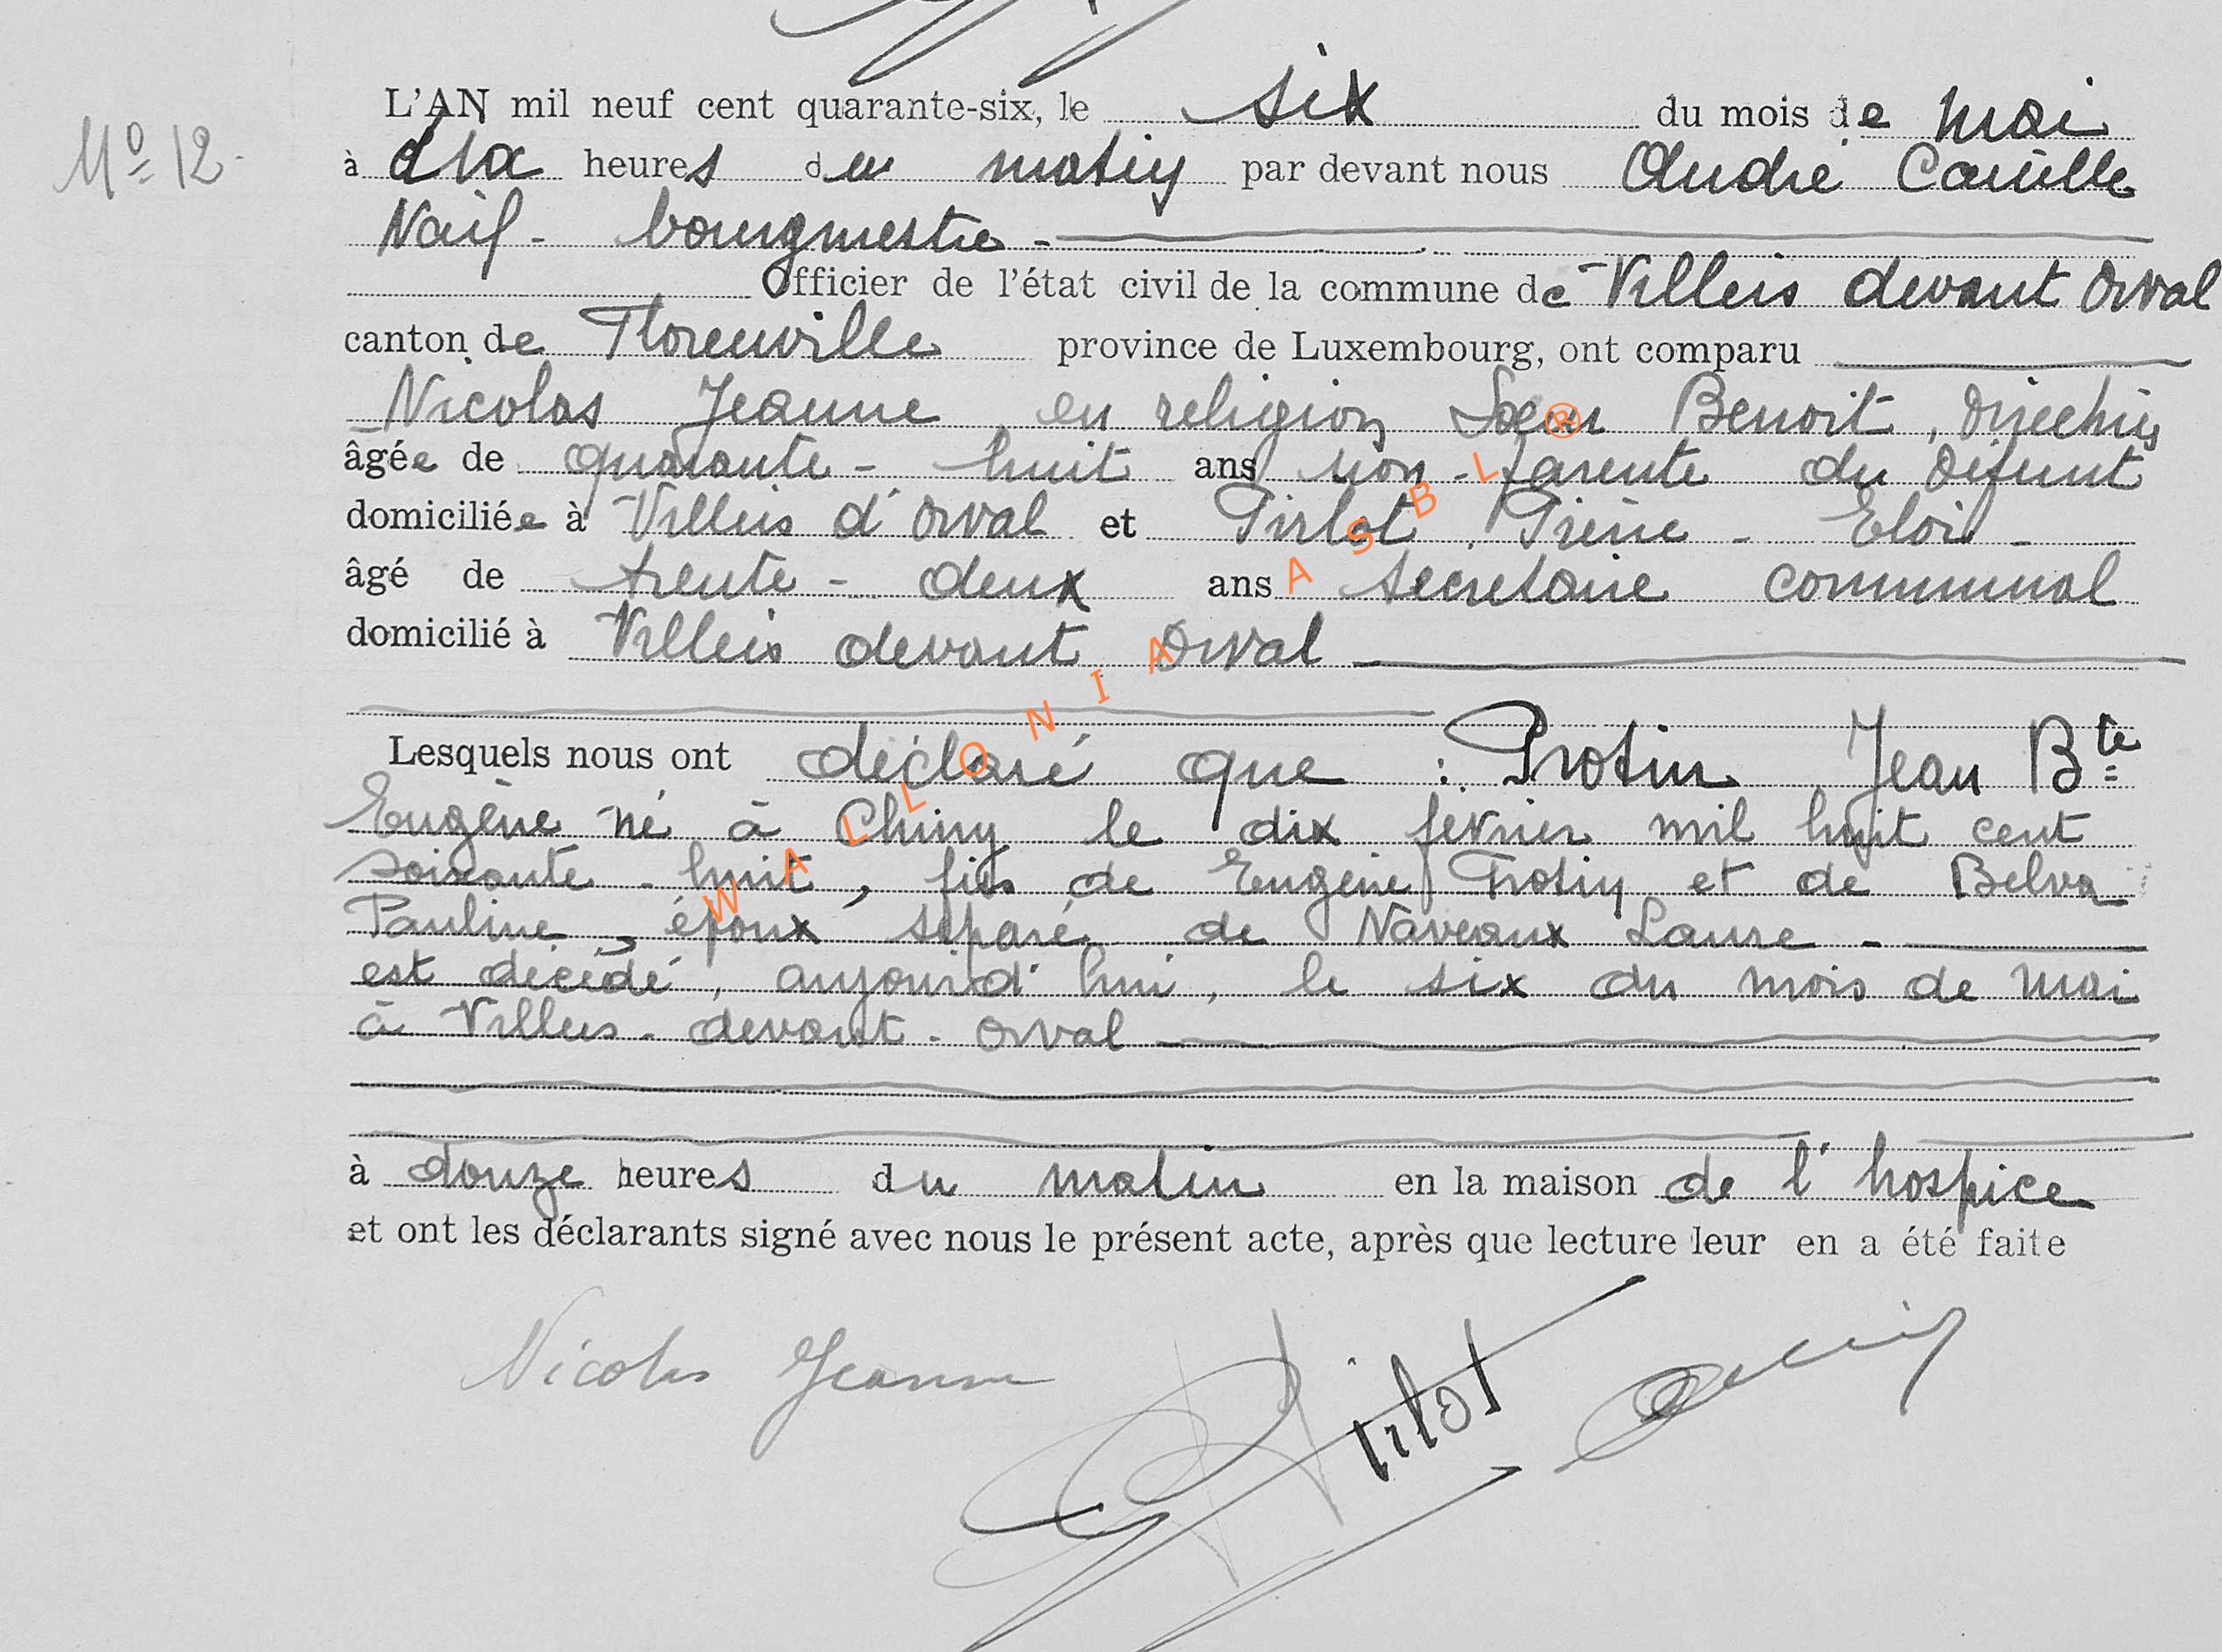 L'AN mil neuf cent quarante-six, le six du mois de mai
N° 12.
à dix heures du matin par devant nous André Camille
Naif - bourgmestre -
Officier de l'état civil de la commune de Villers devant Orval
canton de Florenville province de Luxembourg, ont comparu
Nicolas Jeanne en religion Soeur Benoit, Directrice
âgée de quarante - huit ans non - parente du défunt
domiciliée à Villers d'Orval et Pirlot Pierre - Eloi -
âgé de trente - deux ans secretaire communal
domicilié à Villers devant Orval
Lesquels nous ont déclaré que : Protin Jean Bte
Eugène né à Chiny le dix février mil huit cent
soixante - huit, fils de Eugène Protin et de Belva
Pauline, époux séparé de Naveaux Laure -
est décédé, aujourd'hui, le six du mois de mai
à Villers - devant - Orval
à douze heures du matin en la maison de l'hospice
et ont les déclarants signé avec nous le présent acte, après que lecture leur en a été faite
Nicolas Jeanne Pirlot
WALLONIA ASBL ®